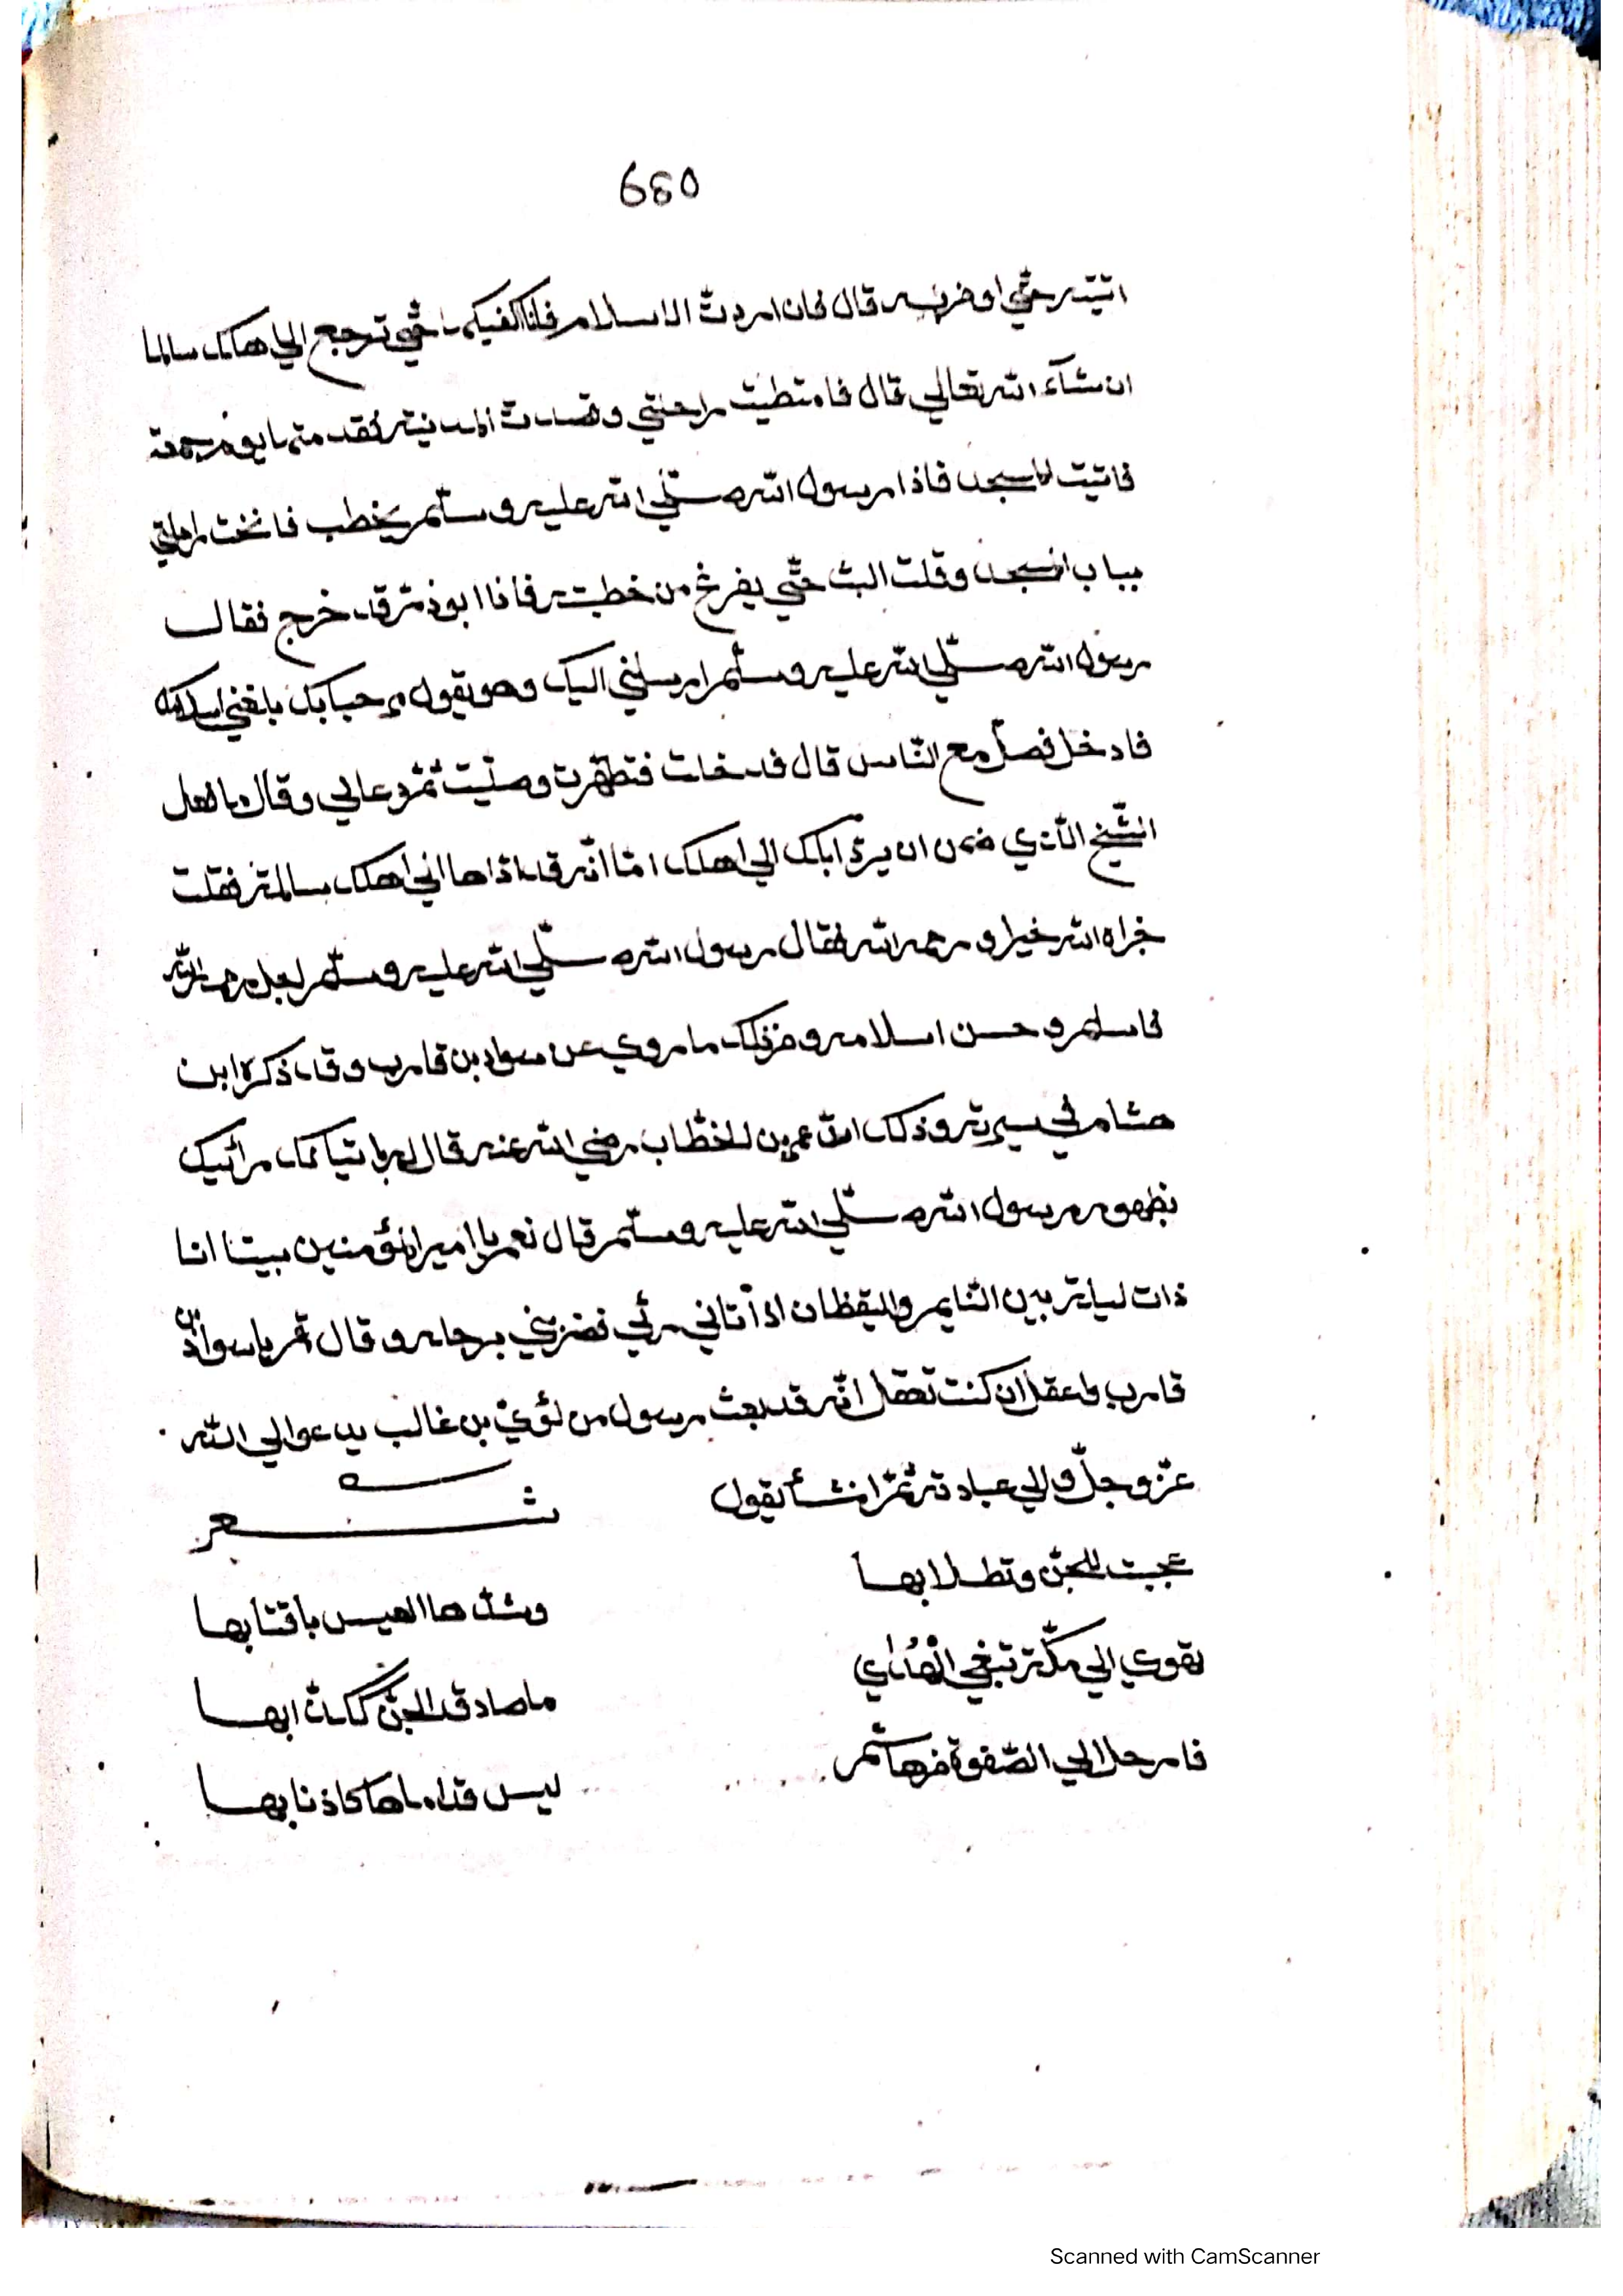 680
اتيته حتي او من به قال فان اردت الاسلام فانا اكفيكها حتي ترجع الي اهلك سالما
ان شآء الله تعالي قال فامتطيت راحلتي وقصدت المدينة فقدمتها يوم جمعة
فاتيت المسجد فاذا رسول الله صلّي الله عليه وسلّم يخطب فانخت راحلتي
بباب المسجد وقلت البث حتّي يفرغ من خطبته فاذا ابو ذر قد خرج فقال
رسول الله صلّي الله عليه وسلّم ارسلني اليك وهو يقول مرحبا بك بلغني اسلامك
فادخل فصلّ مع النّاس قال فدخلت فتطهّرت وصلّيت ثمّ دعاني وقال ما فعل
الشّيخ الّذي ضمن ان يردّ ابلك الي اهلك امّا انّه قد ادّاها الي اهلك سالمة فقلت
جزاه الله خيرا و رحمه الله فقال رسول الله صلّي الله عليه وسلّم اجل رحمه الله
فاسلم و حسن اسلامه و من ذلك ما روي عن سواد بن قارب وقد ذكره ابن
هشام في سيرته وذلك انّ عمر بن الخطّاب رضي الله عنه قال له يا اتياك رائيك
بظهور رسول الله صلّي الله عليه وسلّم قال نعم يا امير المؤمنين بينا انا
ذات ليلة بين النّايم واليقظان اذ أتاني رئي فضربني برجله و قال قم يا سواد بن
قارب واعقل ان كنت تعقل انّه قد بعث رسول من لؤيّ بن غالب يدعو الي الله
عزّ وجلّ والي عبادته ثمّ انشأ يقول شعر
عجبت للجنّ وتطلابها وشدّها العيس باقتابها
تهوي الي مكّة تبغي الهُدٰي ما صادق الجنّ ككذّابها
فارحل الي الصّفوة من هاشم ليس قداماها كاذنابها
Scanned with CamScanner